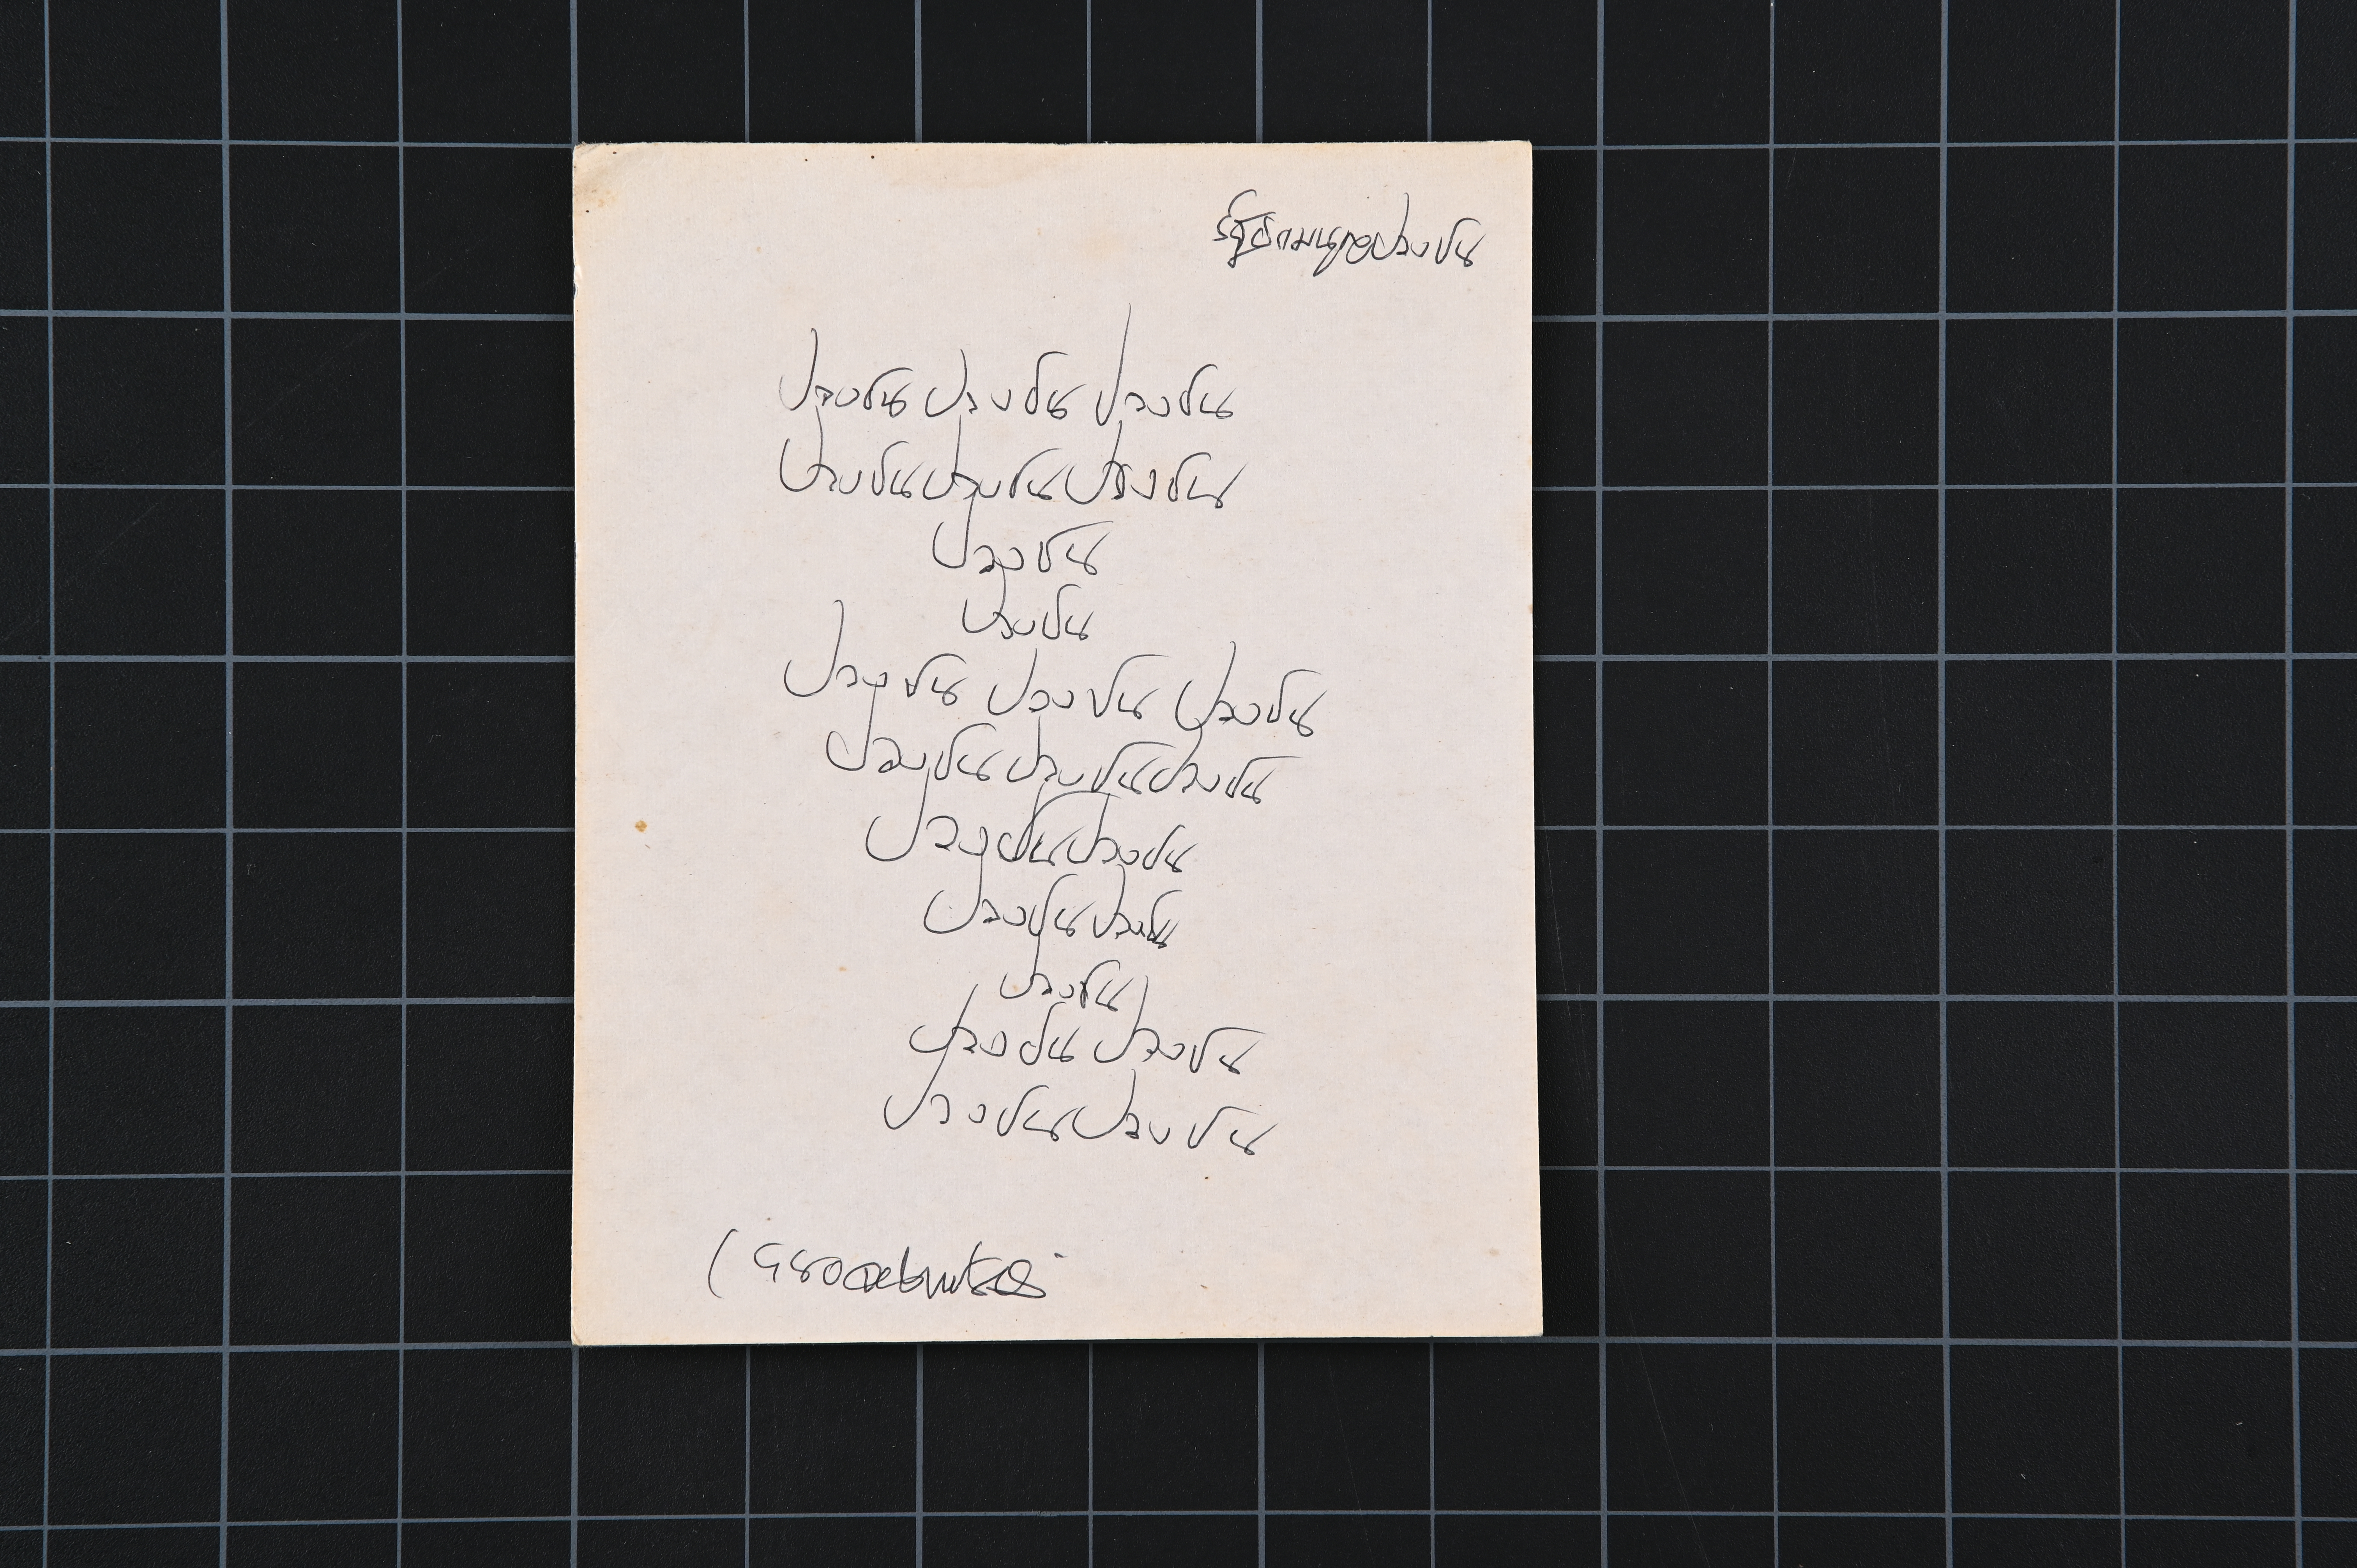 ปวงชน ปวงชน ปวงชน
ปวงชนปวงชนปวงชน
ปวงชน
ปวงชน
ปวงชน ปวงชน ปวงชน
ปวงชนปวงชนปวงชน
ปวงชนปวงชน
ปวงชนปวงชน
ปวงชน
ปวงชน ปวงชน
ปวงชนปวงชน